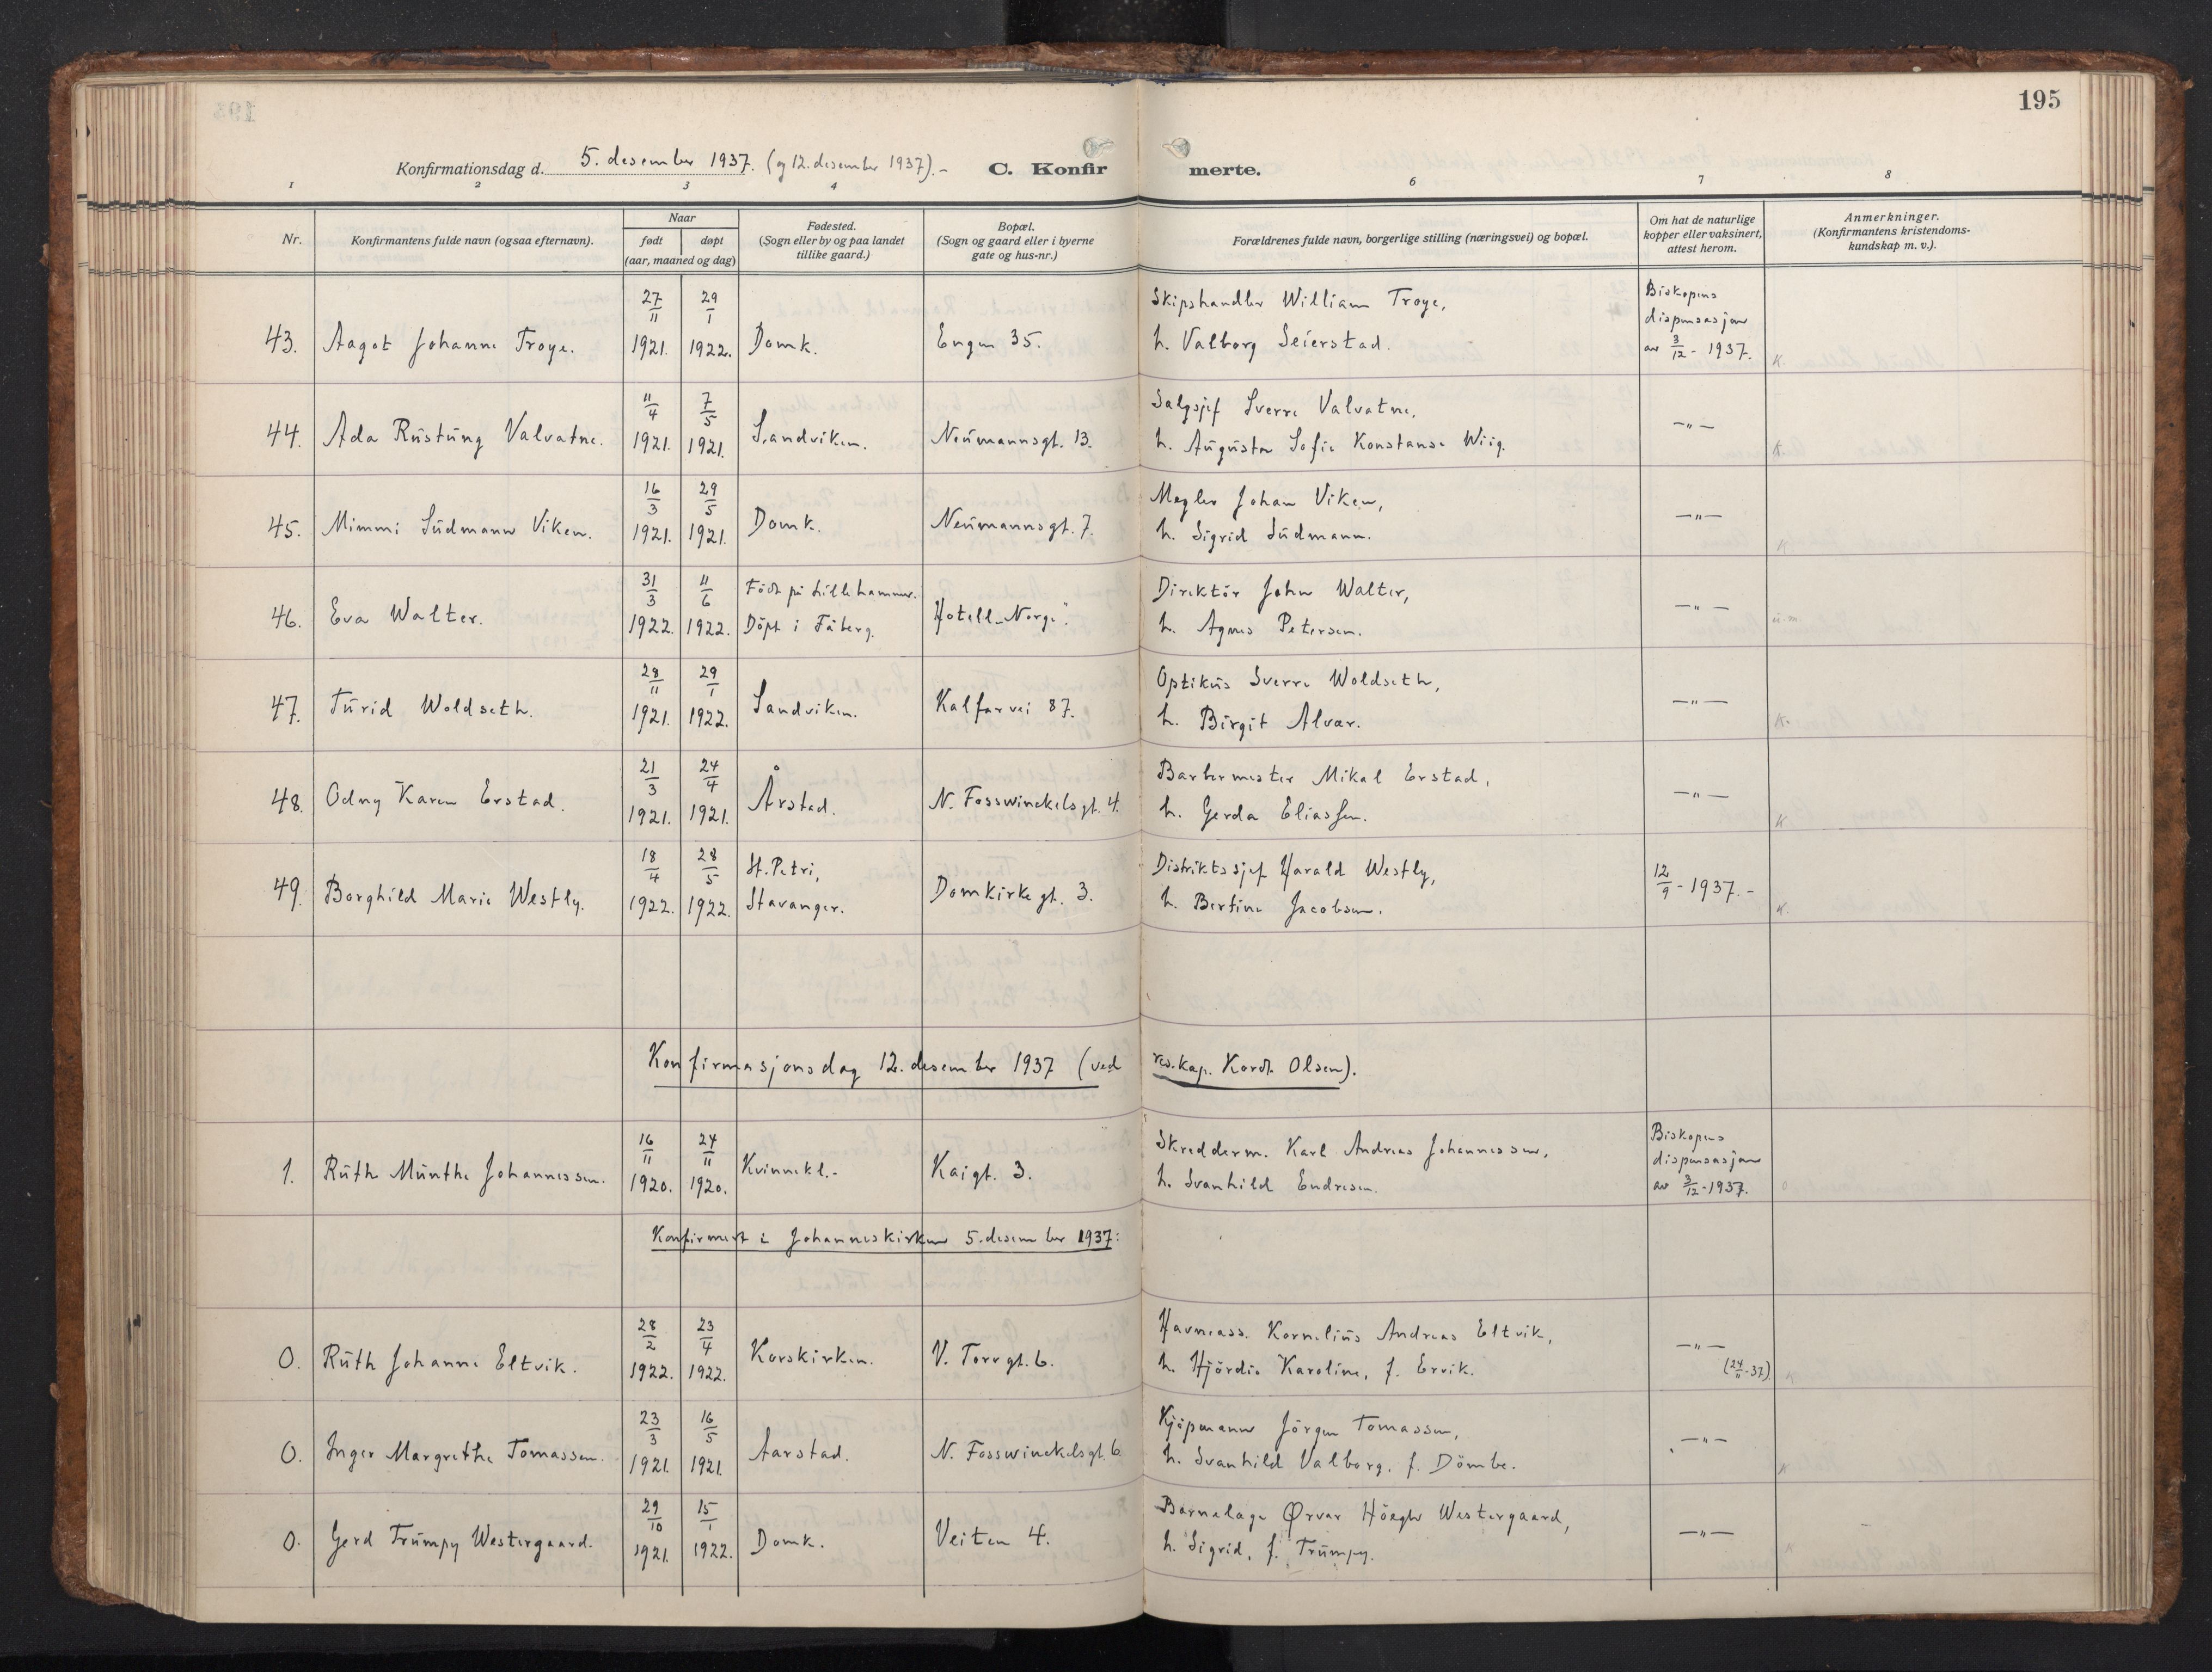 195
Konfirmationsdag d. 5. desember 1937. (og 12. desember 1937). -
C. Konfir merte.
1 2 3 4 6 7 8
Nr.
Konfirmantens fulde navn (ogsaa efternavn).
Naar
født døpt
(aar, maaned og dag)
Fødested.
(Sogn eller by og paa landet
tillike gaard.)
Bopæl.
(Sogn og gaard eller i byerne
gate og hus-nr.)
Forældrenes fulde navn, borgerlige stilling (næringsvei) og bopæl.
Om hat de naturlige
kopper eller vaksinert,
attest herom.
Anmerkninger.
(Konfirmantens kristendoms-
kundskap m. v.).
27/11 29/1 Skipshandler William Troye, Biskopens
dispensasjon
43. Aagot Johanne Troye. 1921. 1922. Domk. Engen 35. h. Valborg Seierstad. av 3/12 - 1937. K.
11/4 7/5 Salgsjef Sverre Valvatne,
44. Ada Rustung Valvatne. 1921. 1921. Sandviken. Neumannsgt. 13. h. Augusta Sofie Konstanse Wiig. —"— K.
16/3 29/5 Megler Johan Viken,
45. Mimmi Sudmann Viken. 1921. 1921. Domk. Neumannsgt. 7. h. Sigrid Sudmann. —"— K
31/3 11/6 Födt på Lillehammer. Direktör John Walter,
46. Eva Walter. 1922. 1922. Döpt i Fåberg. Hotell „Norge". h. Agnes Petersen. —"— u.m.
28/11 29/1 Optikus Sverre Woldseth,
47. Turid Woldseth. 1921. 1922. Sandviken. Kalfarvei 87. h. Birgit Alvær. —"— K.
21/3 24/4 Barbermester Mikal Erstad,
48. Odny Karen Erstad. 1921. 1921. Årstad. N. Fosswinckelsgt. 4. h. Gerda Eliassen. —"— K
18/4 28/5 St. Petri, Distriktssjef Harald Westly,
49. Borghild Marie Westly. 1922. 1922. Stavanger. Domkirkegt. 3. h. Bertine Jacobsen. 12/9 - 1937. - K.
Konfirmasjonsdag 12. desember 1937 (ved res.kap. Kordt Olsen).
16/11 24/11 Skredderm. Karl Andreas Johannessen, Biskopens
dispensasjon
1. Ruth Munthe Johannessen. 1920. 1920. Kvinnekl. - Kaigt. 3. h. Svanhild Endresen. av 3/12 - 1937. o
Konfirmert i Johanneskirken 5. desember 1937:
28/2 23/4 Havneass. Kornelius Andreas Eltvik,
0. Ruth Johanne Eltvik. 1922. 1922. Korskirken. V. Torvgt. 6. h. Hjördis Karoline, f. Ervik. —"— (24/11-37). K
23/3 16/5 Kjöpmann Jörgen Tomassen,
0. Inger Margrethe Tomassen. 1921. 1921. Aarstad. N. Fosswinckelsgt. 6 h. Svanhild Valborg, f. Dömbe. —"— K
29/10 15/1 Ørvar Höegh Westergaard,
0. Gerd Trumpy Westergaard. 1921. 1922. Domk. Veiten 4. h. Sigrid, f. Trumpy. —"—